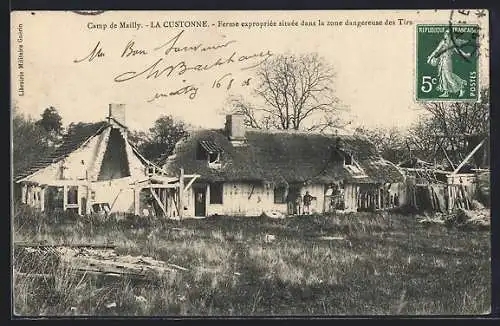 Camp de Mailly. - LA CUSTONNE. - Ferme expropriée située dans la zone dangereuse des Tirs
Librairie Militaire Guérin
Mon Bon Souvenir
RÉPUBLIQUE FRANÇAISE
5c
POSTES